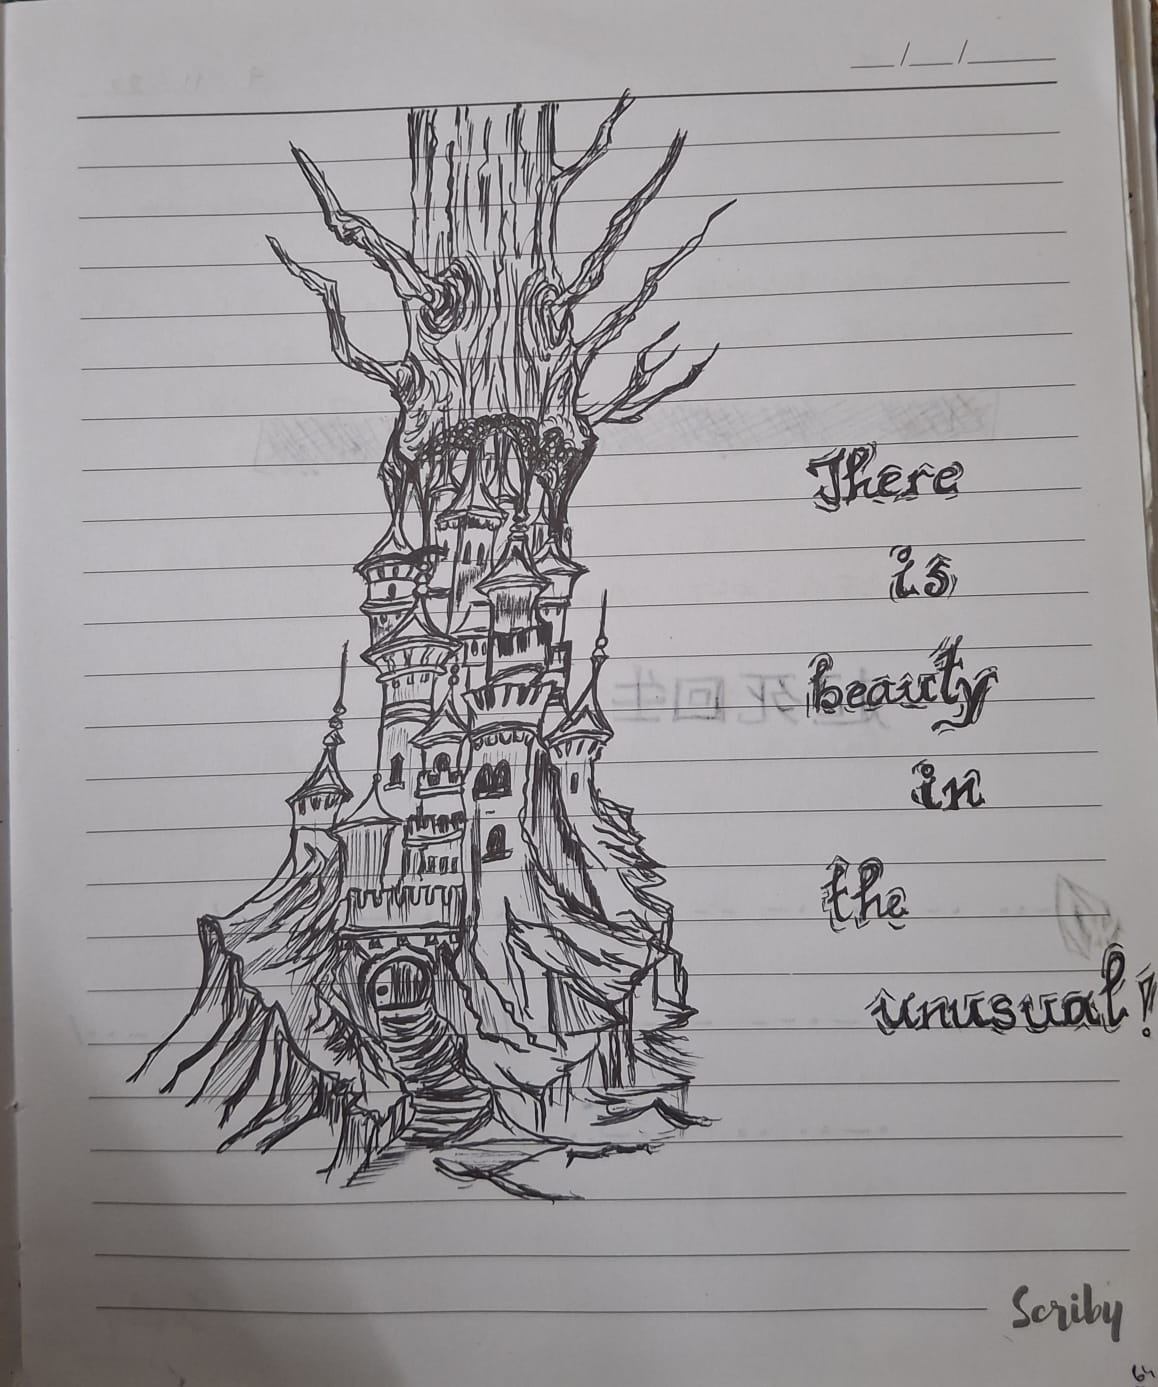 There
is
beauty
in
the
unusual!
Scriby
64